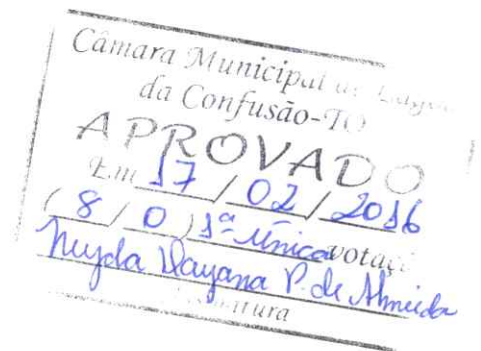 Câmara Municipal de Lagoa
da Confusão-TO
APROVADO
Em 17 / 02 / 2016
( 8 / 0 ) 1ª única votaçã
Neyda Dayana P. de Almeida
Assinatura